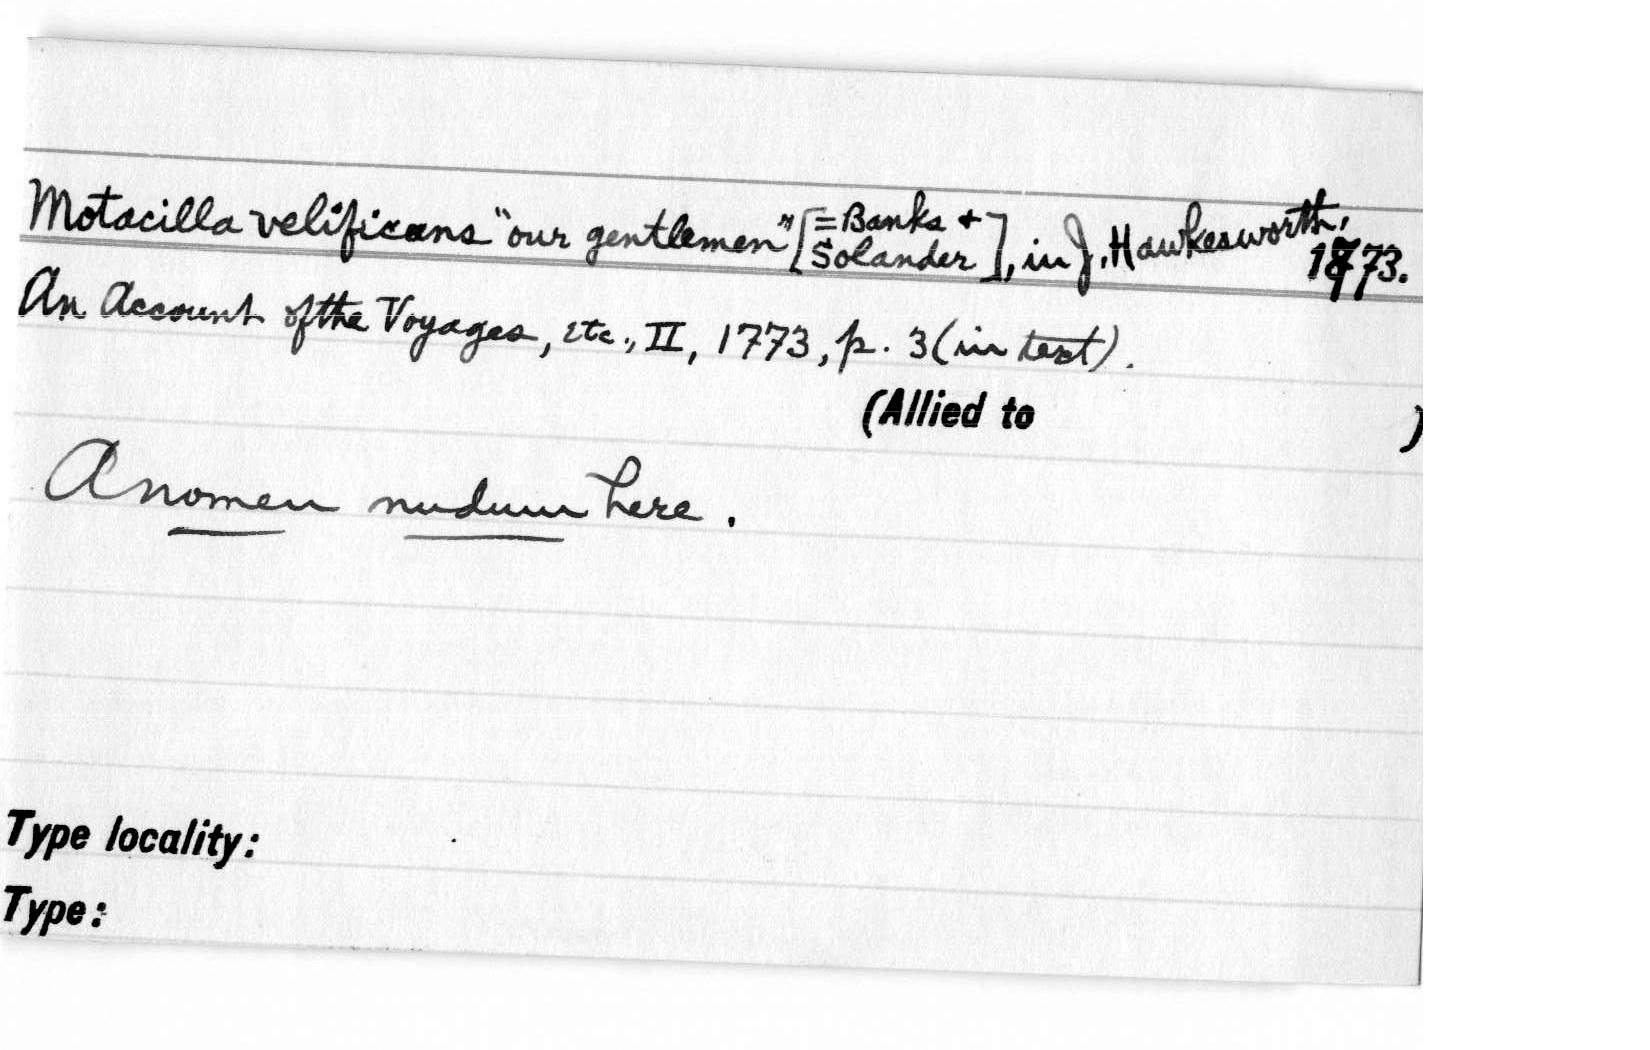 Motacilla velificans "our gentlemen" [= Banks + Solander], in J. Hawkesworth, 1773.
An Account of the Voyages, etc., II, 1773, p. 3 (in text).
(Allied to )
A nomen nudum here.
Type locality:
Type: